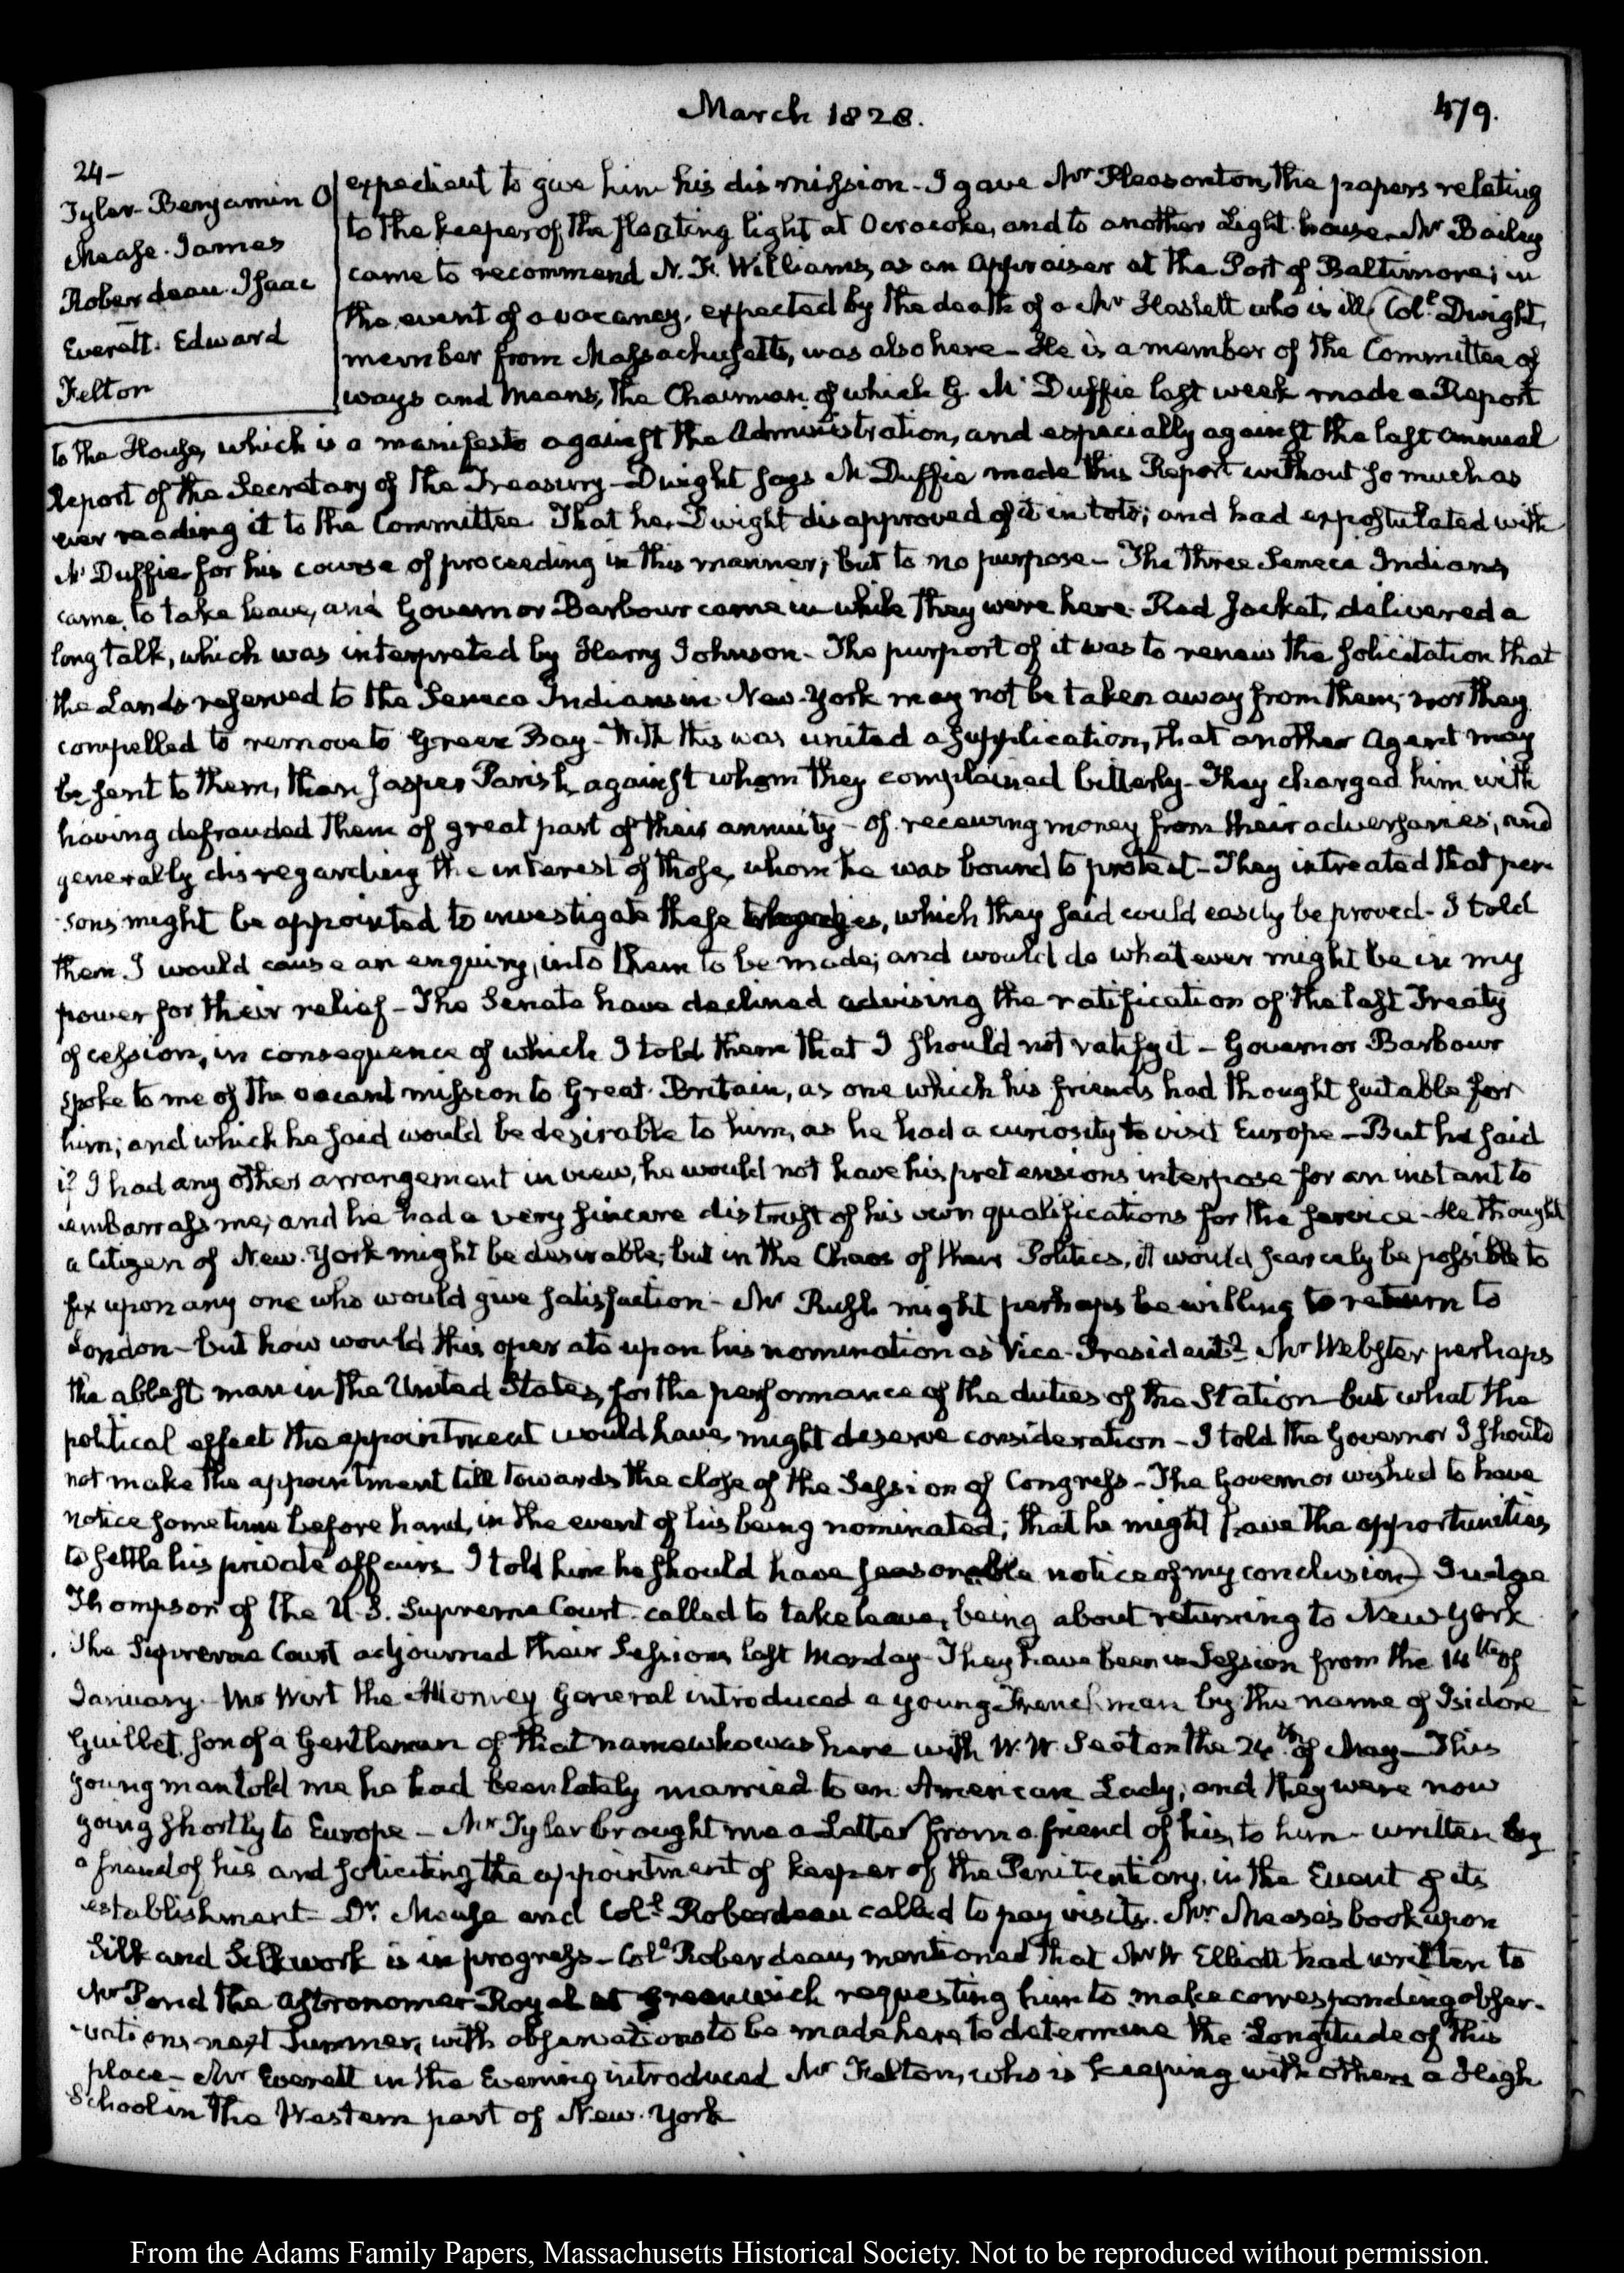 March 1828.
479.
24-
Tyler. Benjamin O
Mease. James
Roberdeau. Isaac
Everett. Edward
Felton
expedient to give him his dismission - I gave Mr Pleasonton, the papers relating
to the keeper of the floating light at Ocracoke, and to another Light-house. Mr Bailey
came to recommend N. F. Williams, as an Appraiser at the Port of Baltimore; in
the event of a vacancy, expected by the death of a Mr Haslett who is ill (Coll. Dwight,
member from Massachusetts, was also here - He is a member of the Committee of
ways and Means, the Chairman of which G. McDuffie last week made a Report
to the House, which is a manifesto against the Administration, and especially against the last annual
Report of the Secretary of the Treasury - Dwight says McDuffie made this Report without so much as
ever reading it to the Committee. That he, Dwight disapproved of it in toto; and had expostulated with
McDuffie for his course of proceeding in this manner; but to no purpose - The three Seneca Indians,
came, to take leave, and Governor Barbour came in while they were here. Red Jacket, delivered a
long talk, which was interpreted by Harry Johnson - The purport of it was to renew the solicitation that
the Lands reserved to the Seneca Indians in New-York may not be taken away from them; nor they
compelled to remove to Green Bay - With this was united a supplication, that another Agent may
be sent to them, than Jasper Parish, against whom they complained bitterly - They charged him with
having defrauded them of great part of their annuity - of receiving money from their adversaries; and
generally disregarding the interest of those, whom he was bound to protect - They intreated that per-
sons might be appointed to investigate these charges, which they said could easily be proved - I told
them I would cause an enquiry, into them to be made; and would do whatever might be in my
power for their relief - The Senate have declined advising the ratification of the last Treaty
of cession, in consequence of which I told them that I should not ratify it - Governor Barbour
spoke to me of the vacant mission to Great-Britain, as one which his friends had thought suitable for
him; and which he said would be desirable to him, as he had a curiosity to visit Europe - But he said
if I had any other arrangement in view, he would not have his pretensions interpose for an instant to
embarrass me; and he had a very sincere distrust of his own qualifications for the service - He thought
a Citizen of New-York might be desirable; but in the Chaos of their Politics, it would scarcely be possible to
fix upon any one who would give satisfaction - Mr Rush might perhaps be willing to return to
London - but how would this operate upon his nomination as Vice-President? Mr Webster perhaps
the ablest man in the United States, for the performance of the duties of the Station - but what the
political effect the appointment would have, might deserve consideration - I told the Governor I should
not make the appointment till towards the close of the Session of Congress - The Governor wished to have
notice sometime before hand, in the event of his being nominated; that he might have the opportunities
to settle his private affairs. I told him he should have seasonable notice of my conclusion) Judge
Thompson of the U.S. Supreme Court called to take leave, being about returning to New York
The Supreme Court adjourned their Sessions last Monday - They have been in Session from the 14th of
January. Mr Wirt the Attorney General introduced a young Frenchman by the name of Isidore
Guillet, son of a Gentleman of that name who was here with W. W. Seaton the 24th of May - This
young man told me he had been lately married to an American Lady; and they were now
going shortly to Europe - Mr Tyler brought me a Letter from a friend of his, to him - written by
a friend of his and soliciting the appointment of keeper of the Penitentiary, in the Event of its
establishment - Dr. Mease and Coll. Roberdeau called to pay visits. Mr Mease's book upon
Silk and Silkwork is in progress - Coll. Roberdeau, mentioned that Mr W Elliott had written to
Mr Pond the Astronomer Royal at Greenwich requesting him to make corresponding obser-
vations next Summer, with observations to be made here, to determine the Longitude of this
place - Mr Everett in the Evening introduced Mr Felton, who is keeping with others a High
School in the Western part of New-York
From the Adams Family Papers, Massachusetts Historical Society. Not to be reproduced without permission.